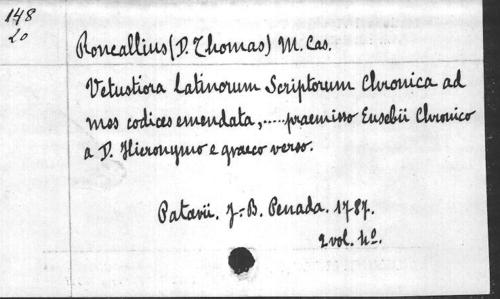 148
20
Roncallius (D. Thomas) M. Cas.
Vetustiora Latinorum Scriptorum Chronica ad
mss codices emendata,.....praemisso Eusebii Chronico
a D. Hieronymo e graeco verso.
Patavii. J.-B. Penada. 1787.
2 vol. 4º.